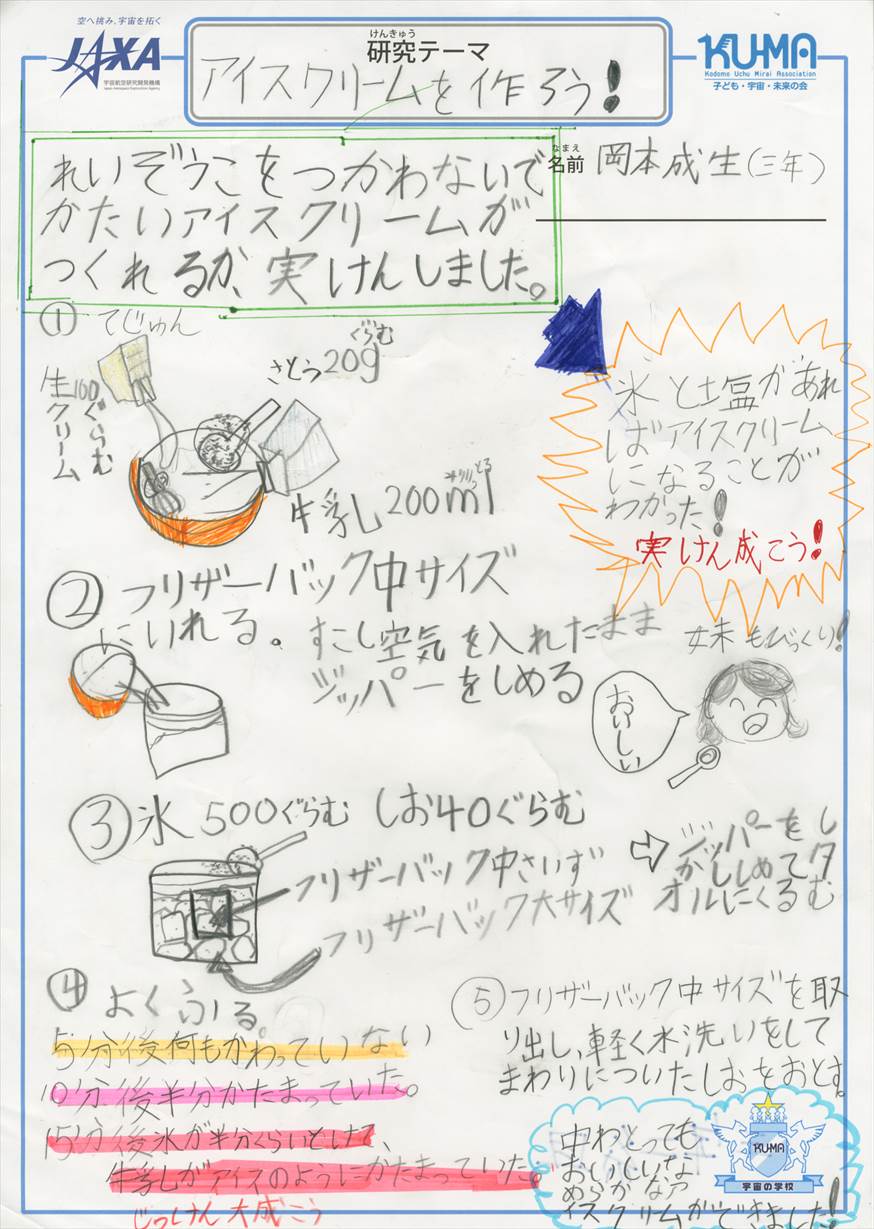 空へ挑み、宇宙を拓く
JAXA
宇宙航空研究開発機構
Japan Aerospace Exploration Agency
けんきゅう
研究テーマ
アイスクリームを作ろう!
KU-MA
Kodomo Uchu Mirai Association
子ども・宇宙・未来の会
なまえ
名前 岡本成生(三年)
れいぞうこをつかわないで
かたいアイスクリームが
つくれるか、実けんしました。
① てじゅん
生クリーム
100ぐらむ
さとう20g
ぐらむ
牛乳200ml
氷と塩があれ
ばアイスクリーム
になることが
わかった!
実けん成こう!
② フリザーバック中サイズ
にいれる。すこし空気を入れたまま
ジッパーをしめる
妹もびっくり!
おいしい
③ 氷 500ぐらむ しお40ぐらむ
フリザーバック中さいず
フリザーバック大サイズ
⇨ ジッパーをし
かししめてタ
オルにくるむ
④ よくふる。
5分後何もかわっていない
10分後半分かたまっていた。
15分後氷が半分くらいとけて、
牛乳がアイスのようにかたまっていた。
じっけん大成こう
⑤ フリザーバック中サイズを取
り出し、軽く水洗いをして
まわりについたしおをおとす。
中わとっても
おいしいな
めらかなア
イスクリームができました!
KU-MA
宇宙の学校